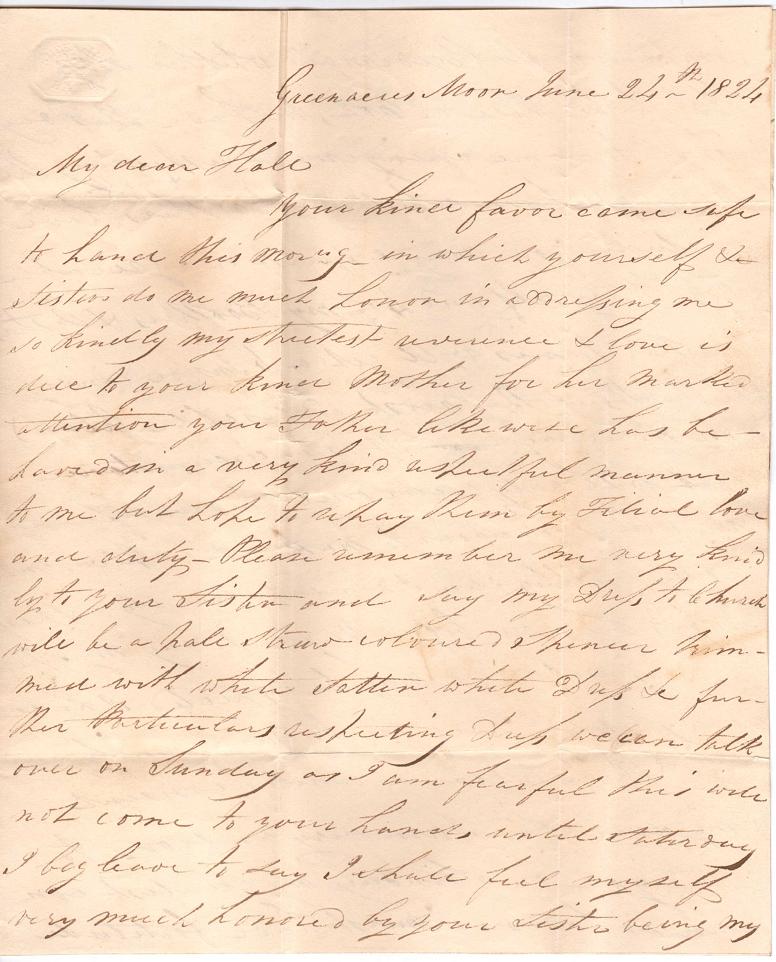 Greenacres Moor June 24th 1824
My dear Hall
Your kind favor came safe
to hand this morng in which yourself &
Sisters do me much honor in addressing me
so kindly my strictest reverence & love is
due to your kind Mother for her marked
attention your Father likewise has be-
haved in a very kind respectful manner
to me but hope to repay them by Filial love
and duty - Please remember me very kind
ly to your Sister and say my Dress to Church
will be a pale straw coloured Spencer trim-
med with white Satten white Dress & fur-
ther Particulars respecting Dress we can talk
over on Sunday as I am fearful this will
not come to your hands until Saturday
I beg leave to say I shall feel myself
very much honored by your Sister being my